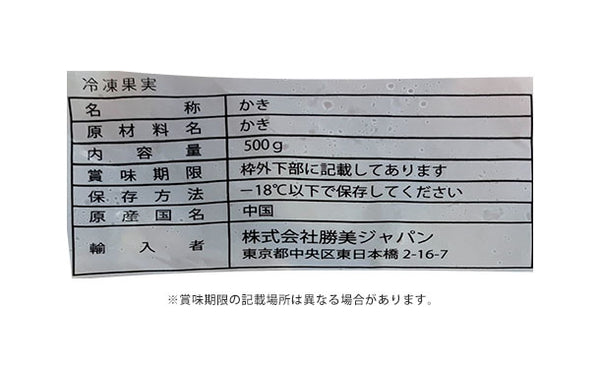 冷凍果実
名称 かき
原材料名 かき
内容量 500g
賞味期限 枠外下部に記載してあります
保存方法 －18℃以下で保存してください
原産国名 中国
輸入者 株式会社勝美ジャパン
東京都中央区東日本橋 2-16-7
※賞味期限の記載場所は異なる場合があります。